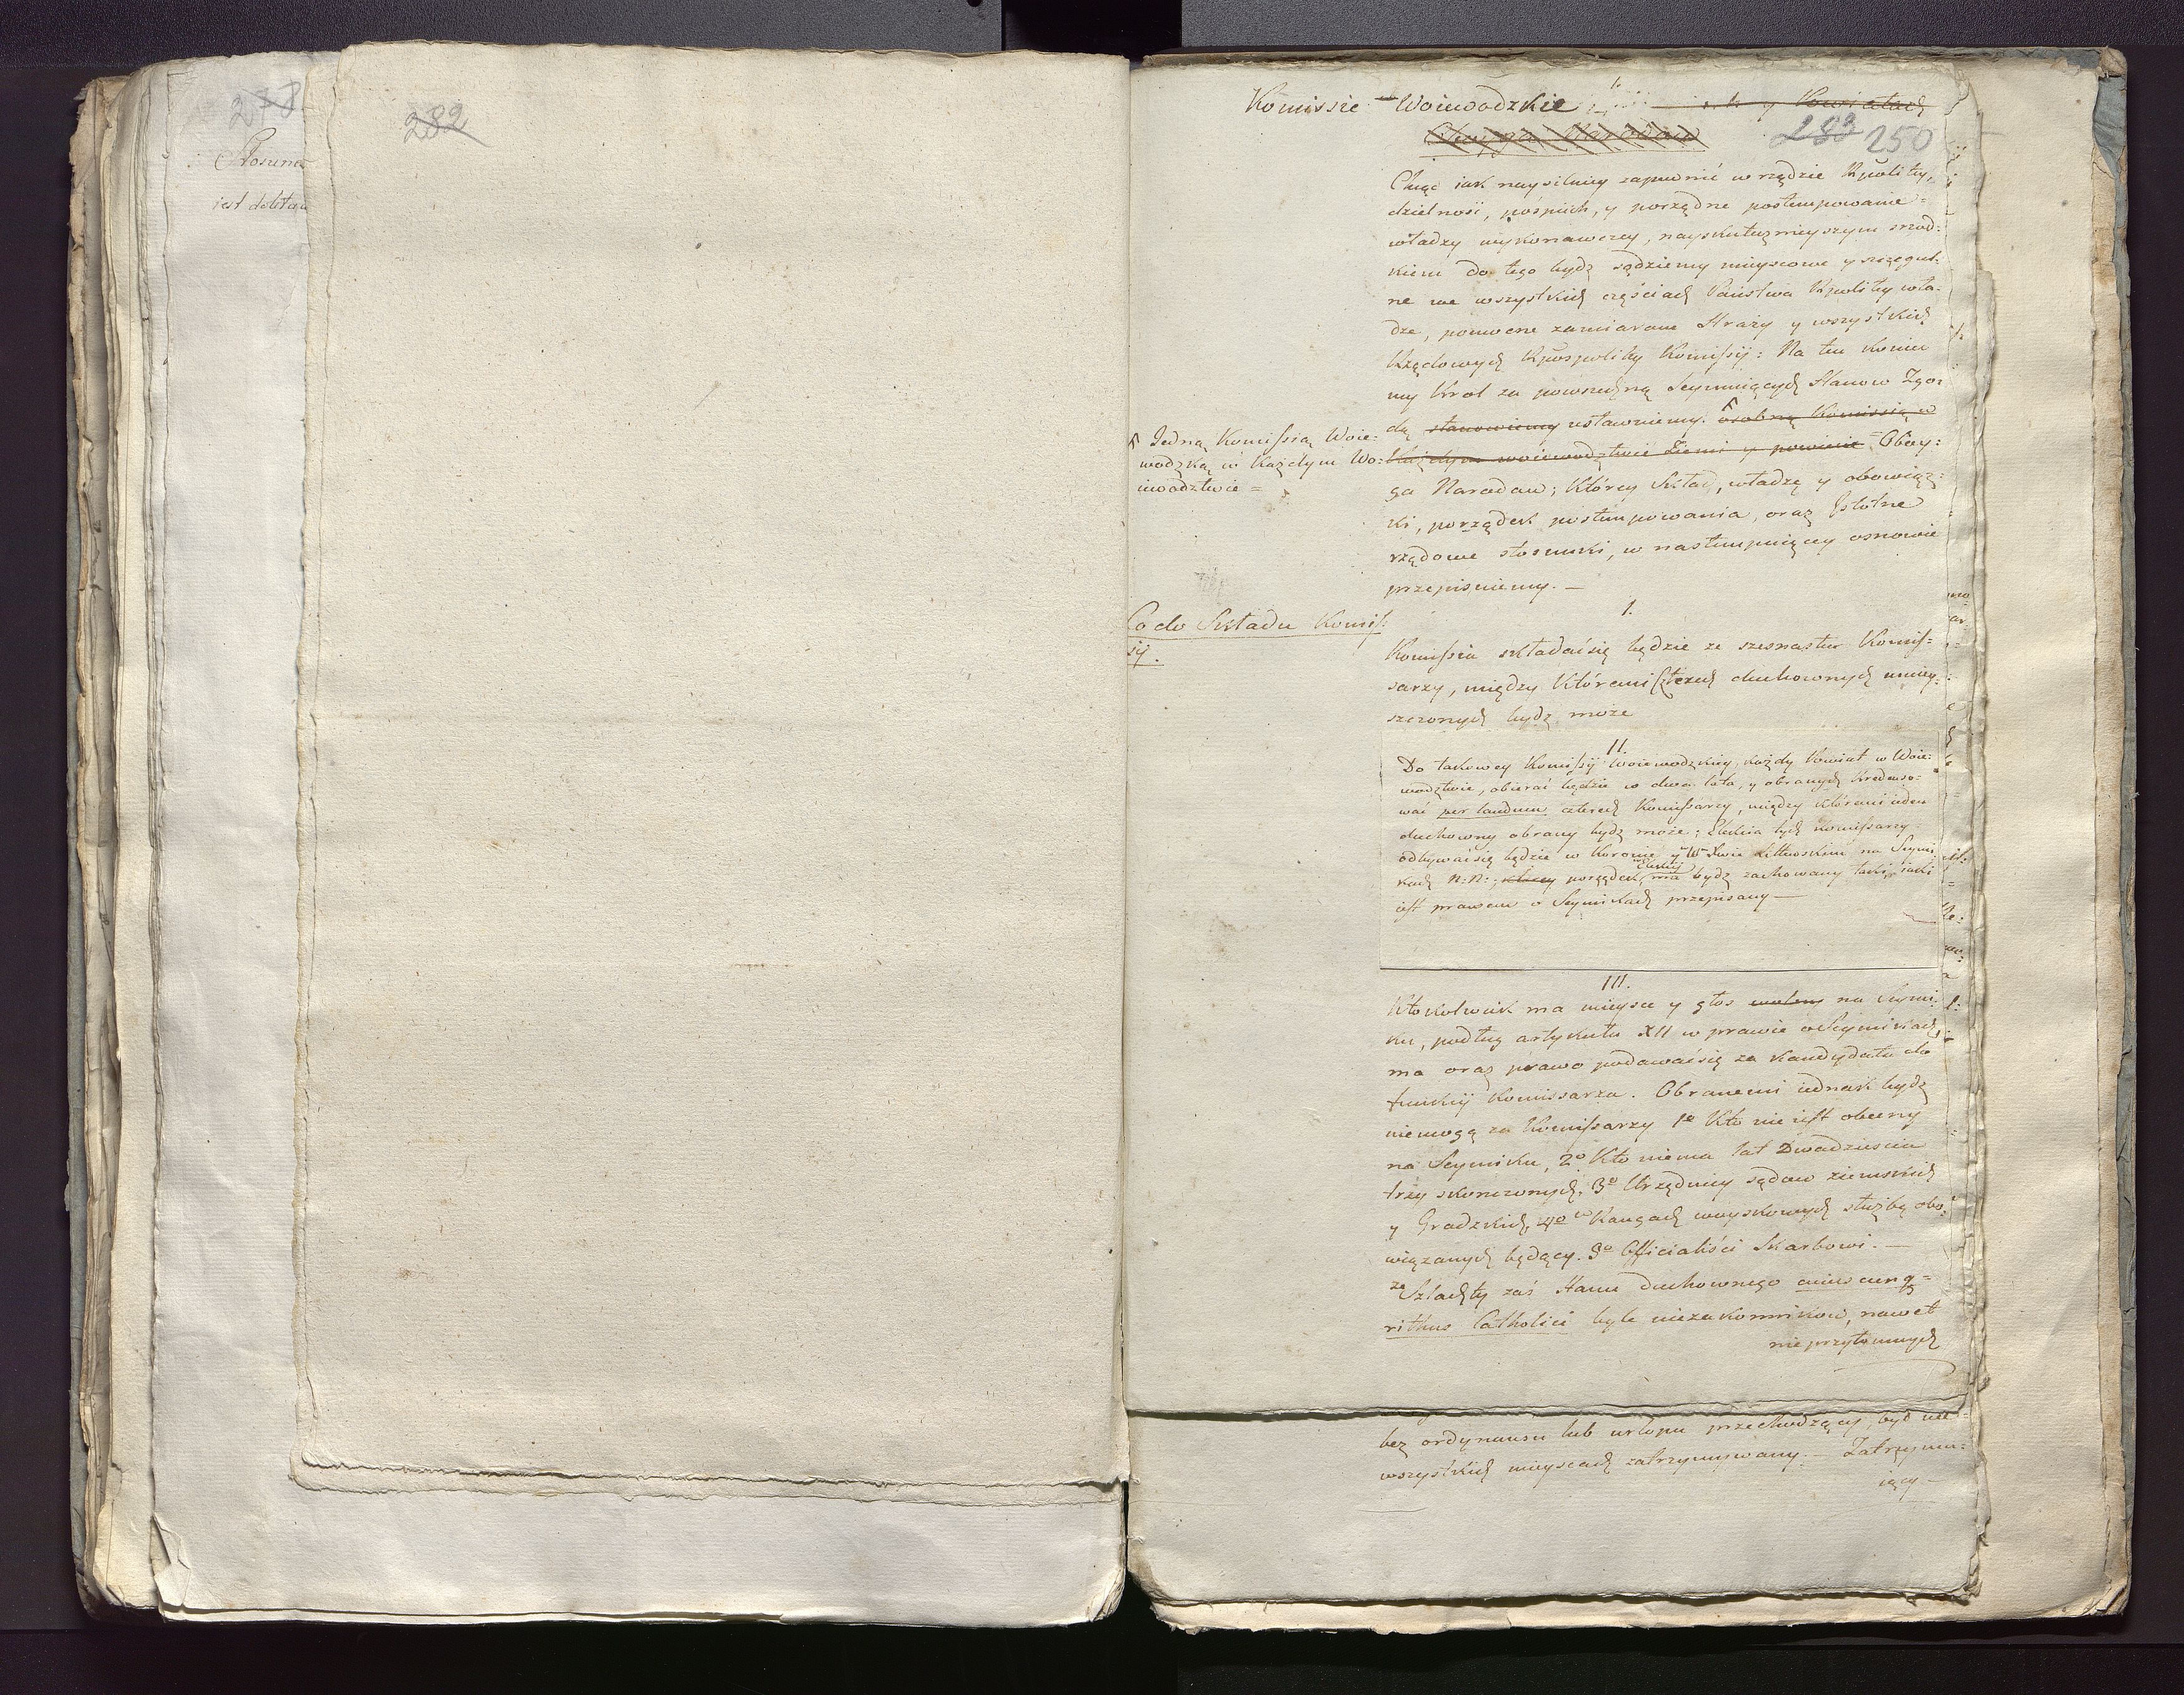 278
Stosune
jest dosta
282
Komissie Woiewodzkie y Powiatach
283 250
Chcąc iak naysilniey zapewnić w rządzie Rzwolitey,
dzielność, pośpiech, y porządne postempowanie
władzy wykonawczey, nayskutecznieyszym srzod:
kiem do tego bydź sądziemy mieyscowe y szczegul:
ne we wszystkich częściach Państwa Rzwolitey wła:
dze, pomocne zamiarom Straży y wszystkich
Rządowych Rzwspolitey Komissyi: Na ten koniec
my Krol za powszechną Seymuiących Stanow Zgo:
dą stanowiemy ustawuiemy. osobną Komissią w
każdym woiewodztwie Ziemi y powiecie Oboy:
ga Narodow; Którey Skład, władzę y obowiąz:
ki, porządek postempowania, oraz Istotne
rządowe stosunki, w nastempuiącey osnowie
przepisuiemy. —
Γ Jedną Komissią Woie:
wodzką w każdym Wo:
iewodztwie =
Co do Składu Komis:
syi.
1.
Komissia składać się będzie ze szesnastu Komis=
sarzy, między Któremi Czterech duchownych umiey:
szczonych bydź może
II.
Do takowey Komissyi Woiewodzkiey, każdy Powiat w Woie:
wodztwie, obierać będzie w dwa lata, y obranych kredenso:
wać per laudum czterech Komissarzy, między któremi ieden
duchowny obrany bydź może; Elekcia tych Komissarzy
odbywać się będzie w Koronie y W. Xwie Littewskim na Seymi
kach N: N: , którey porządek, Elekcij ma bydź zachowany taki, iaki
iest prawem o Seymikach przepisany —
III.
Ktokolwiek ma mieysce y głos wolny na Seymi:
ku, podług artykułu XII w prawie o Seymikach,
ma oraz prawo podawać się za kandydata do
funkcij Komissarza. Obranemi iednak bydź
niemogą za Komissarzy 1o Kto nie iest obecny
na Seymiku, 2o Kto niema lat Dwadziescia
trzy skonczonych, 3o Urzędnicy sądow ziemskich
y Grodzkich, 4o w Rangach woyskowych służbą obo:
wiązanych będący. 5o Officialiści Skarbowi. —
ze Szlachty zaś Stanu duchownego cuiuscunq=
ritus Catholici byle niezakonnikow, nawet
nieprzytomnych
bez ordynansu lub urlopu przechodzący, był we
wszystkich mieyscach zatrzymywany. — Zatrzymu:
iący —